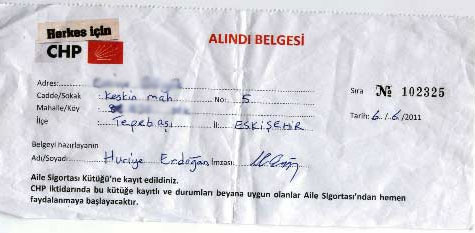 Herkes için
CHP
ALINDI BELGESİ
Adres:
Cadde/Sokak : keskin mah No: 5
Sıra № 102325
Mahalle/Köy :
Tarih: 6/6/2011
İlçe : Tepebaşı İl: ESKİŞEHİR
Belgeyi hazırlayanın
Adı/Soyadı : Huriye Erdoğan İmzası:
Aile Sigortası Kütüğü'ne kayıt edildiniz.
CHP iktidarında bu kütüğe kayıtlı ve durumları beyana uygun olanlar Aile Sigortası'ndan hemen
faydalanmaya başlayacaktır.